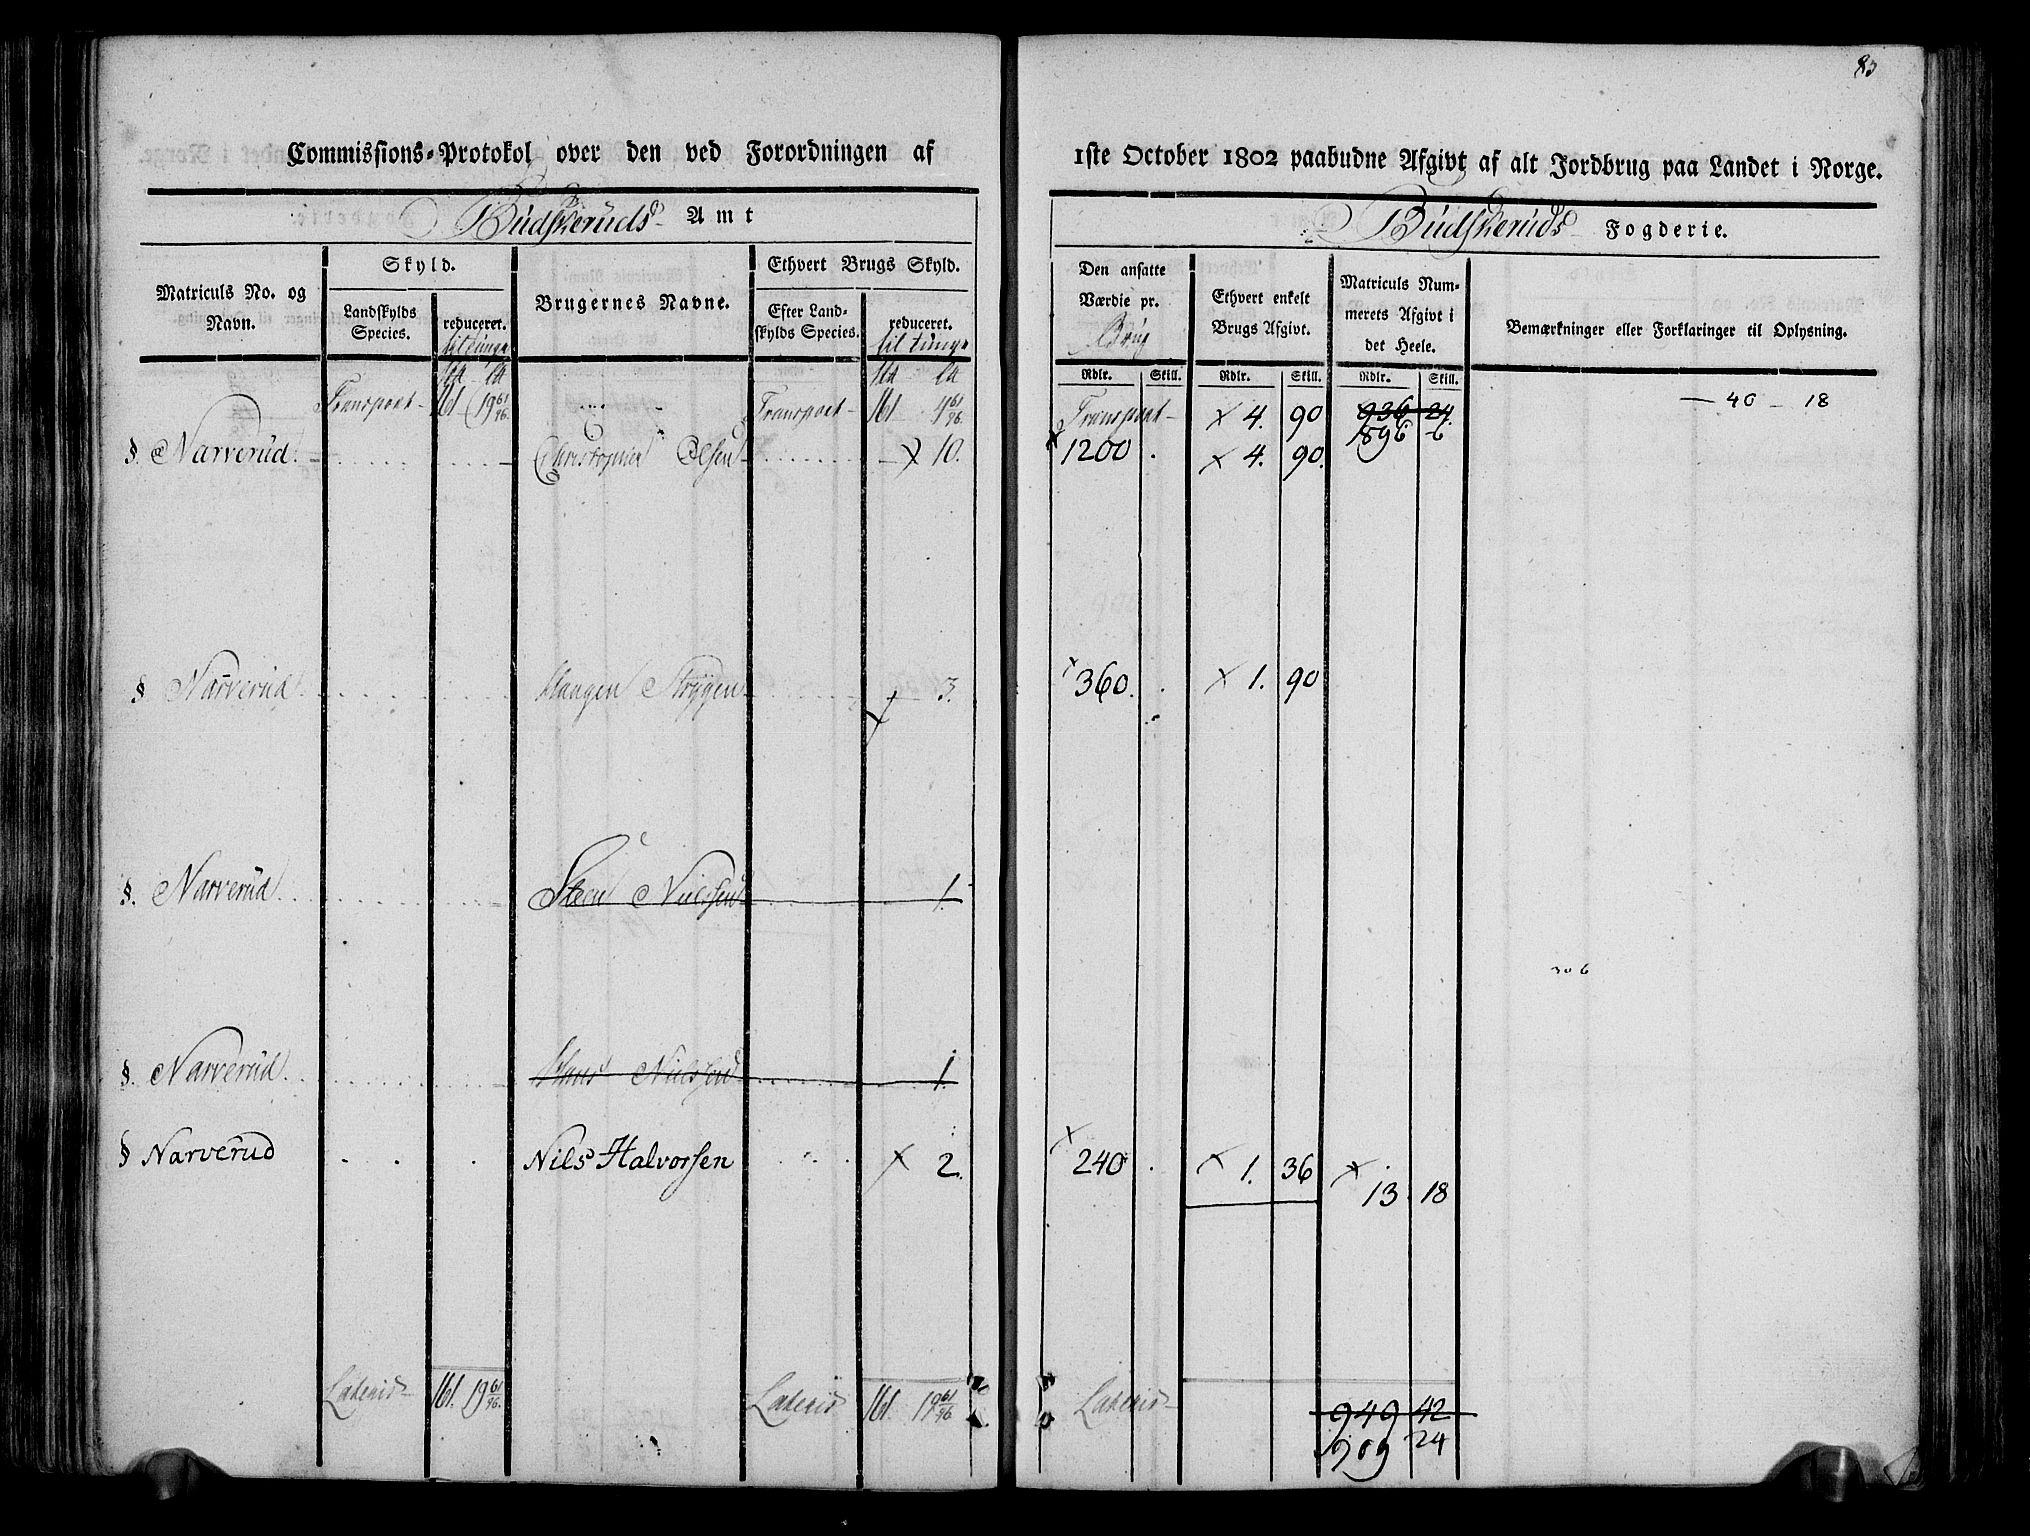 83
Commissions-Protokol over den ved Forordningen af 1ste October 1802 paabudne Afgivt af alt Jordbrug paa Landet i Norge.
Budskeruds Amt
Budskeruds Fogderie.
Matriculs No. og Navn.
Skyld.
Landskylds Species.
reduceret. til tunge
Brugernes Navne.
Ethvert Brugs Skyld.
Efter Landskylds Species.
reduceret. til tunge
Den ansatte Værdie pr. Brug
Ethvert enkelt Brugs Afgivt.
Matriculs Nummerets Afgivt i det Heele.
Bemærkninger eller Forklaringer til Oplysning.
Rdlr. Skill. Rdlr. Skill. Rdlr. Skill.
Transport 161 19 61/96 Transport 161 4 61/96 Transport x 4. 90 936 24 — 40 — 18
896 6
§ Narverud Christopher Olsen x 10. x 1200 x 4. 90.
§ Narverud Haagen Trÿgen 3. x 360 x 1. 90
§. Narverud Steen Nielsen 1.
306
§. Narverud Hans Nielsen 1.
§ Narverud Nils Halvorsen x 2. x 240 x 1. 36 x 13 18
Lateris 161. 19 61/96. Lateris 161. 19 61/96 Lateris 949 42
909 24